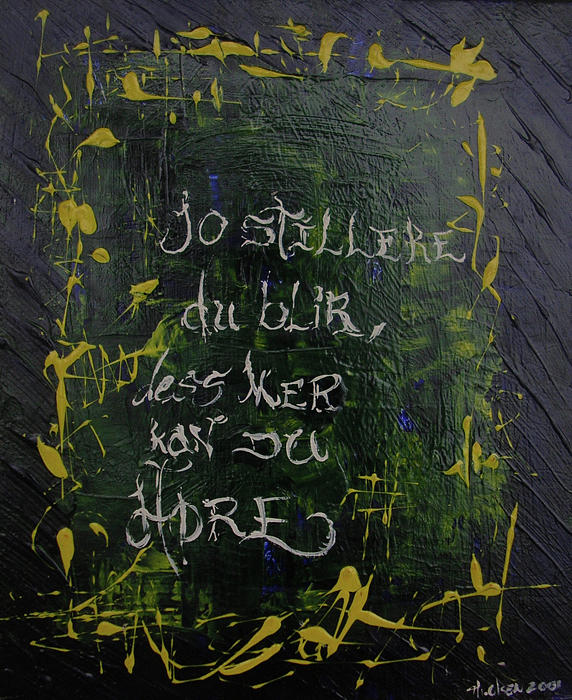 JO STILLERE
du bLiR,
dess MER
kan DU
HØRE